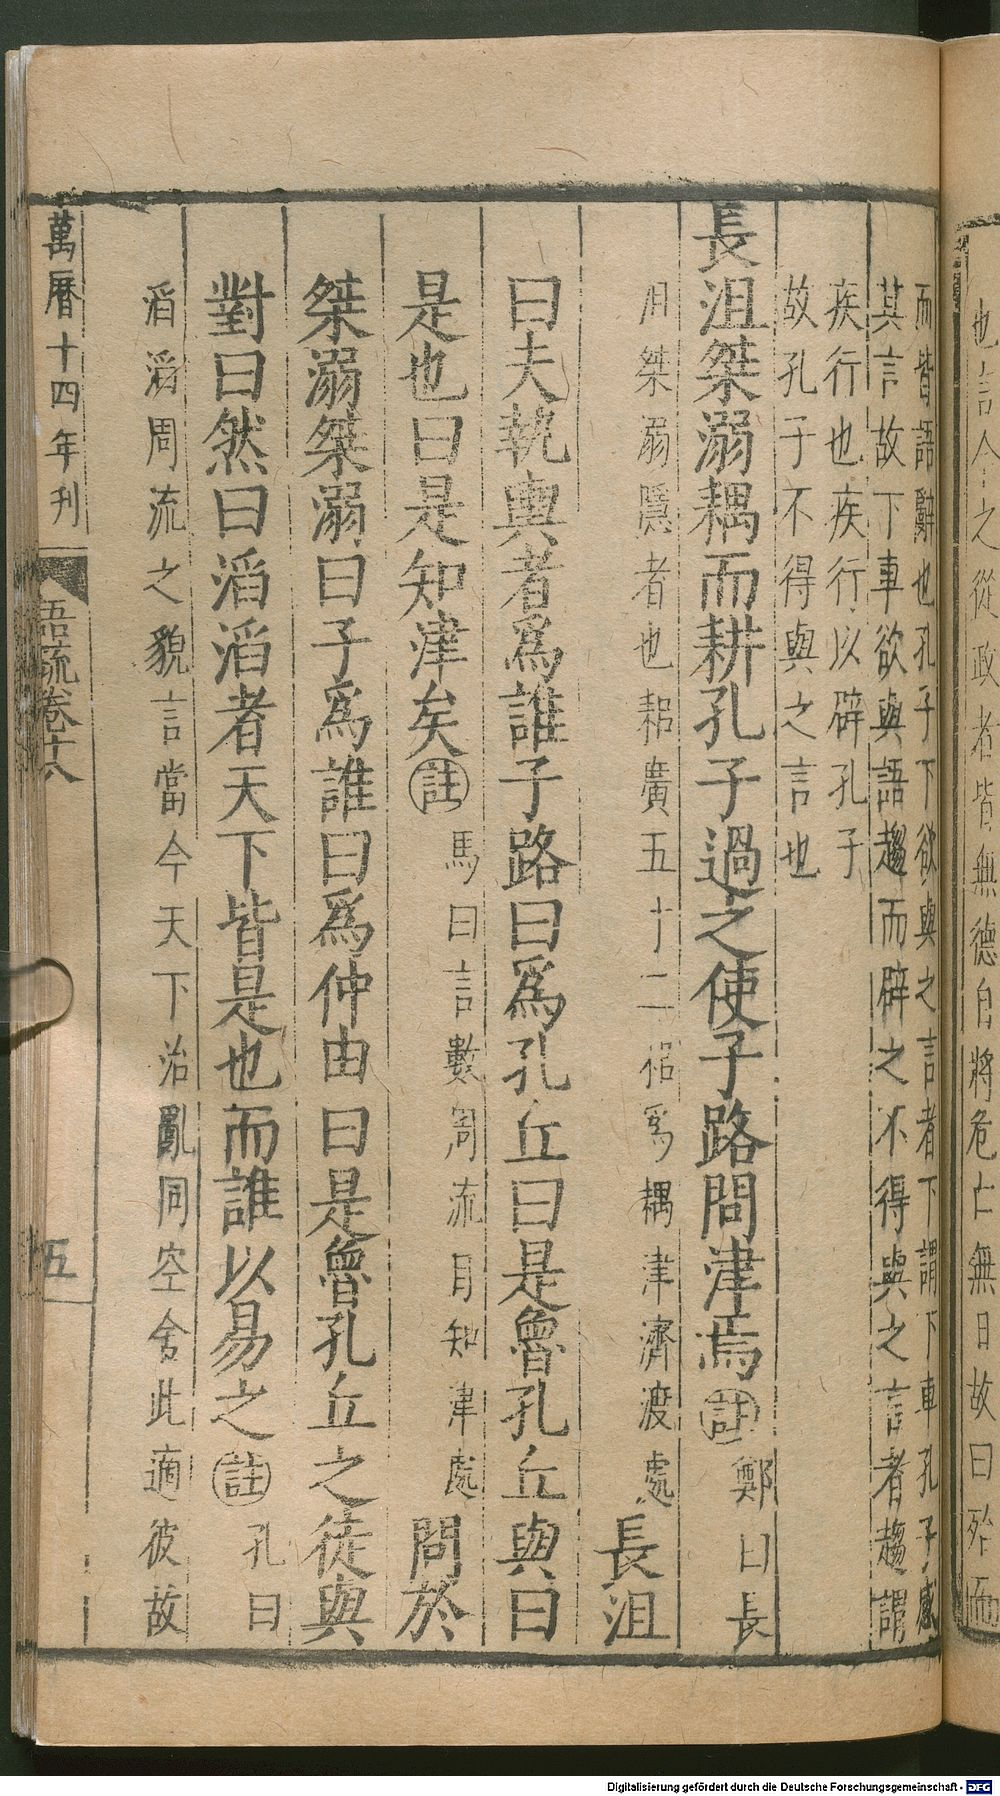 也言今之從政者皆無德自將危亡無日故曰殆而
而皆語辭也孔子下欲與之言者下謂下車孔子感
其言故下車欲與語趨而辟之不得與之言者趨謂
疾行也疾行以辟孔子
故孔子不得與之言也
長沮桀溺耦而耕孔子過之使子路問津焉註鄭曰長
沮桀溺隱者也耜廣五寸二耜爲耦津濟渡處長沮
曰夫執輿者爲誰子路曰爲孔丘曰是魯孔丘與曰
是也曰是知津矣註馬曰言數周流自知津處問於
桀溺桀溺曰子爲誰曰爲仲由曰是魯孔丘之徒與
對曰然曰滔滔者天下皆是也而誰以易之註孔曰
滔滔周流之貌言當今天下治亂同空舍此適彼故
萬曆十四年刊
語疏卷十八
五
Digitalisierung gefördert durch die Deutsche Forschungsgemeinschaft - DFG